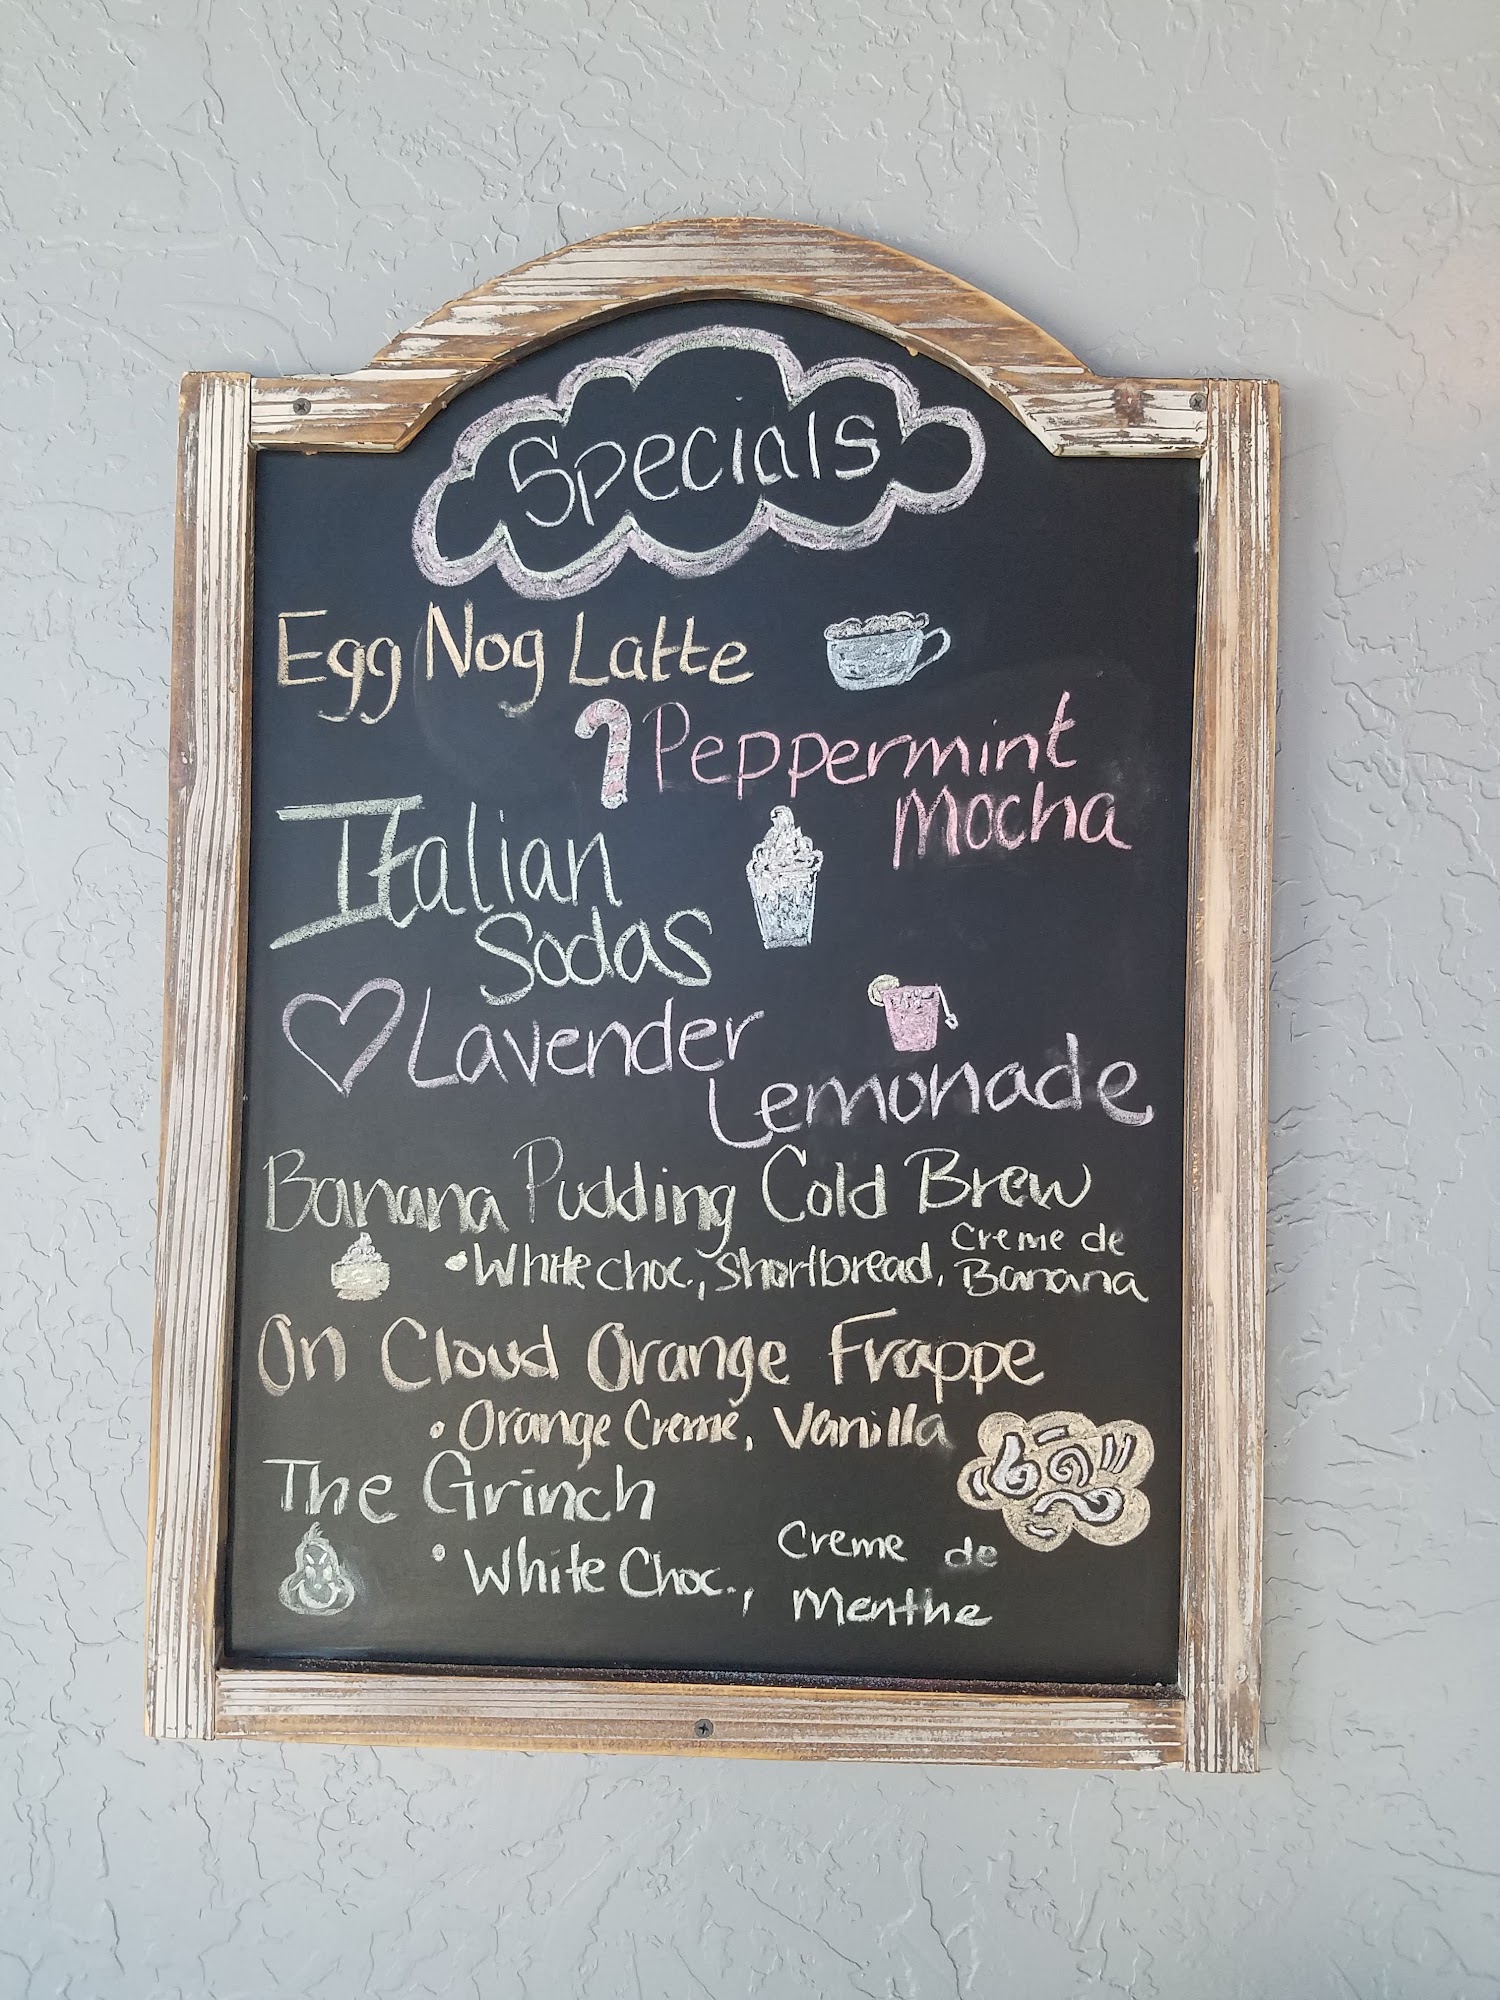 Specials
Egg Nog Latte
Peppermint
Mocha
Italian
Sodas
Lavender
Lemonade
Banana Pudding Cold Brew
• White choc., Shortbread, Creme de
Banana
On Cloud Orange Frappe
• Orange Creme, Vanilla
The Grinch
• White Choc., Creme de
Menthe